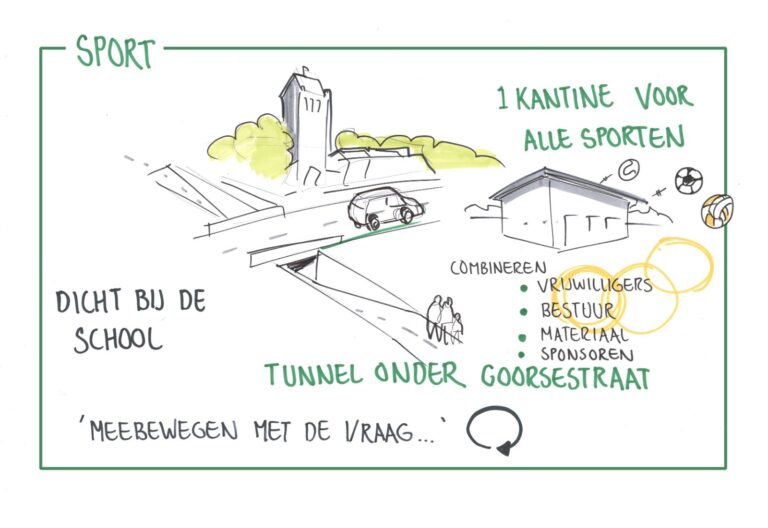 SPORT
1 KANTINE VOOR
ALLE SPORTEN
COMBINEREN
• VRIJWILLIGERS
• BESTUUR
• MATERIAAL
• SPONSOREN
DICHT BIJ DE
SCHOOL
TUNNEL ONDER GOORSESTRAAT
'MEEBEWEGEN MET DE VRAAG...'